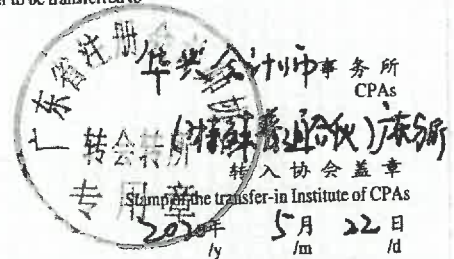 to be transferred to
华兴会计师事务所
CPAs
(特殊普通合伙)广东分所
转入协会盖章
Stamp of the transfer-in Institute of CPAs
2020年 5月 22日
/y /m /d
广东省注册会计师协会
转会转所
专用章